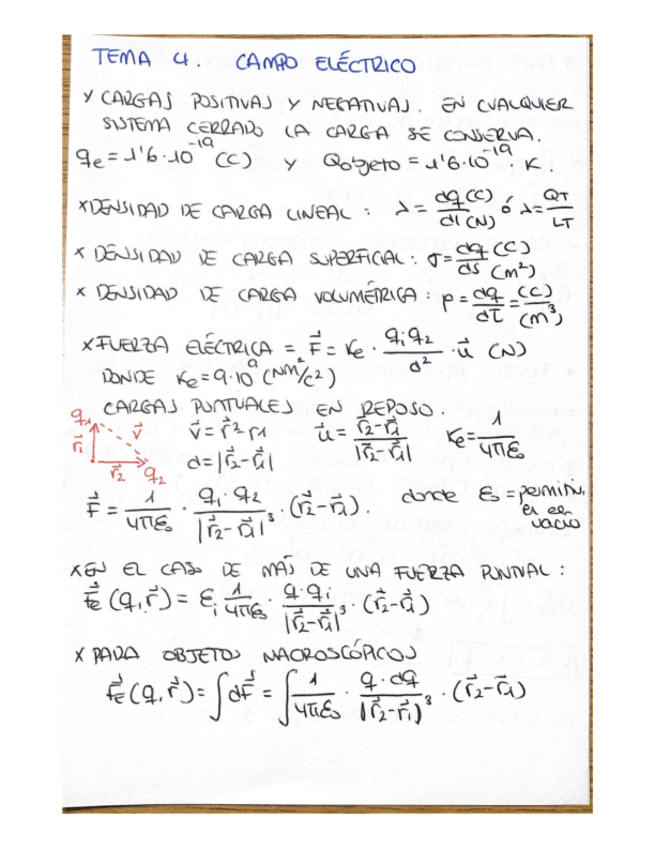 TEMA 4. CAMPO ELÉCTRICO
x CARGAS POSITIVAS Y NEGATIVAS. EN CUALQUIER
SISTEMA CERRADO LA CARGA SE CONSERVA.
qe = 1'6·10^-19 (C) y Qobjeto = 1'6·10^-19 · K.
x DENSIDAD DE CARGA LINEAL : λ = dq (C) / dl (N) ó λ = QT / LT
x DENSIDAD DE CARGA SUPERFICIAL : σ = dq (C) / ds (m²)
x DENSIDAD DE CARGA VOLUMÉTRICA : ρ = dq / dτ = (C) / (m³)
x FUERZA ELÉCTRICA = F⃗ = Ke · q1·q2 / d² · u⃗ (N)
DONDE Ke = 9·10^9 (Nm²/c²)
CARGAS PUNTUALES EN REPOSO.
q1 r⃗1 v⃗ r⃗2 q2
v⃗ = r⃗2 - r1 u⃗ = r⃗2-r⃗1 / |r⃗2-r⃗1| Ke = 1 / 4πε0
d = |r⃗2-r⃗1|
F⃗ = 1 / 4πε0 · q1·q2 / |r⃗2-r⃗1|³ · (r⃗2-r⃗1). donde ε0 = permitiv.
en
vacío
x EN EL CASO DE MÁS DE UNA FUERZA PUNTUAL :
F⃗e (q, r⃗) = Σi 1 / 4πε0 · q·qi / |r⃗2-r⃗1|³ · (r⃗2-r⃗1)
x PARA OBJETOS MACROSCÓPICOS
F⃗e (q, r⃗) = ∫ dF⃗ = ∫ 1 / 4πε0 · q·dq / |r⃗2-r⃗1|³ · (r⃗2-r⃗1)